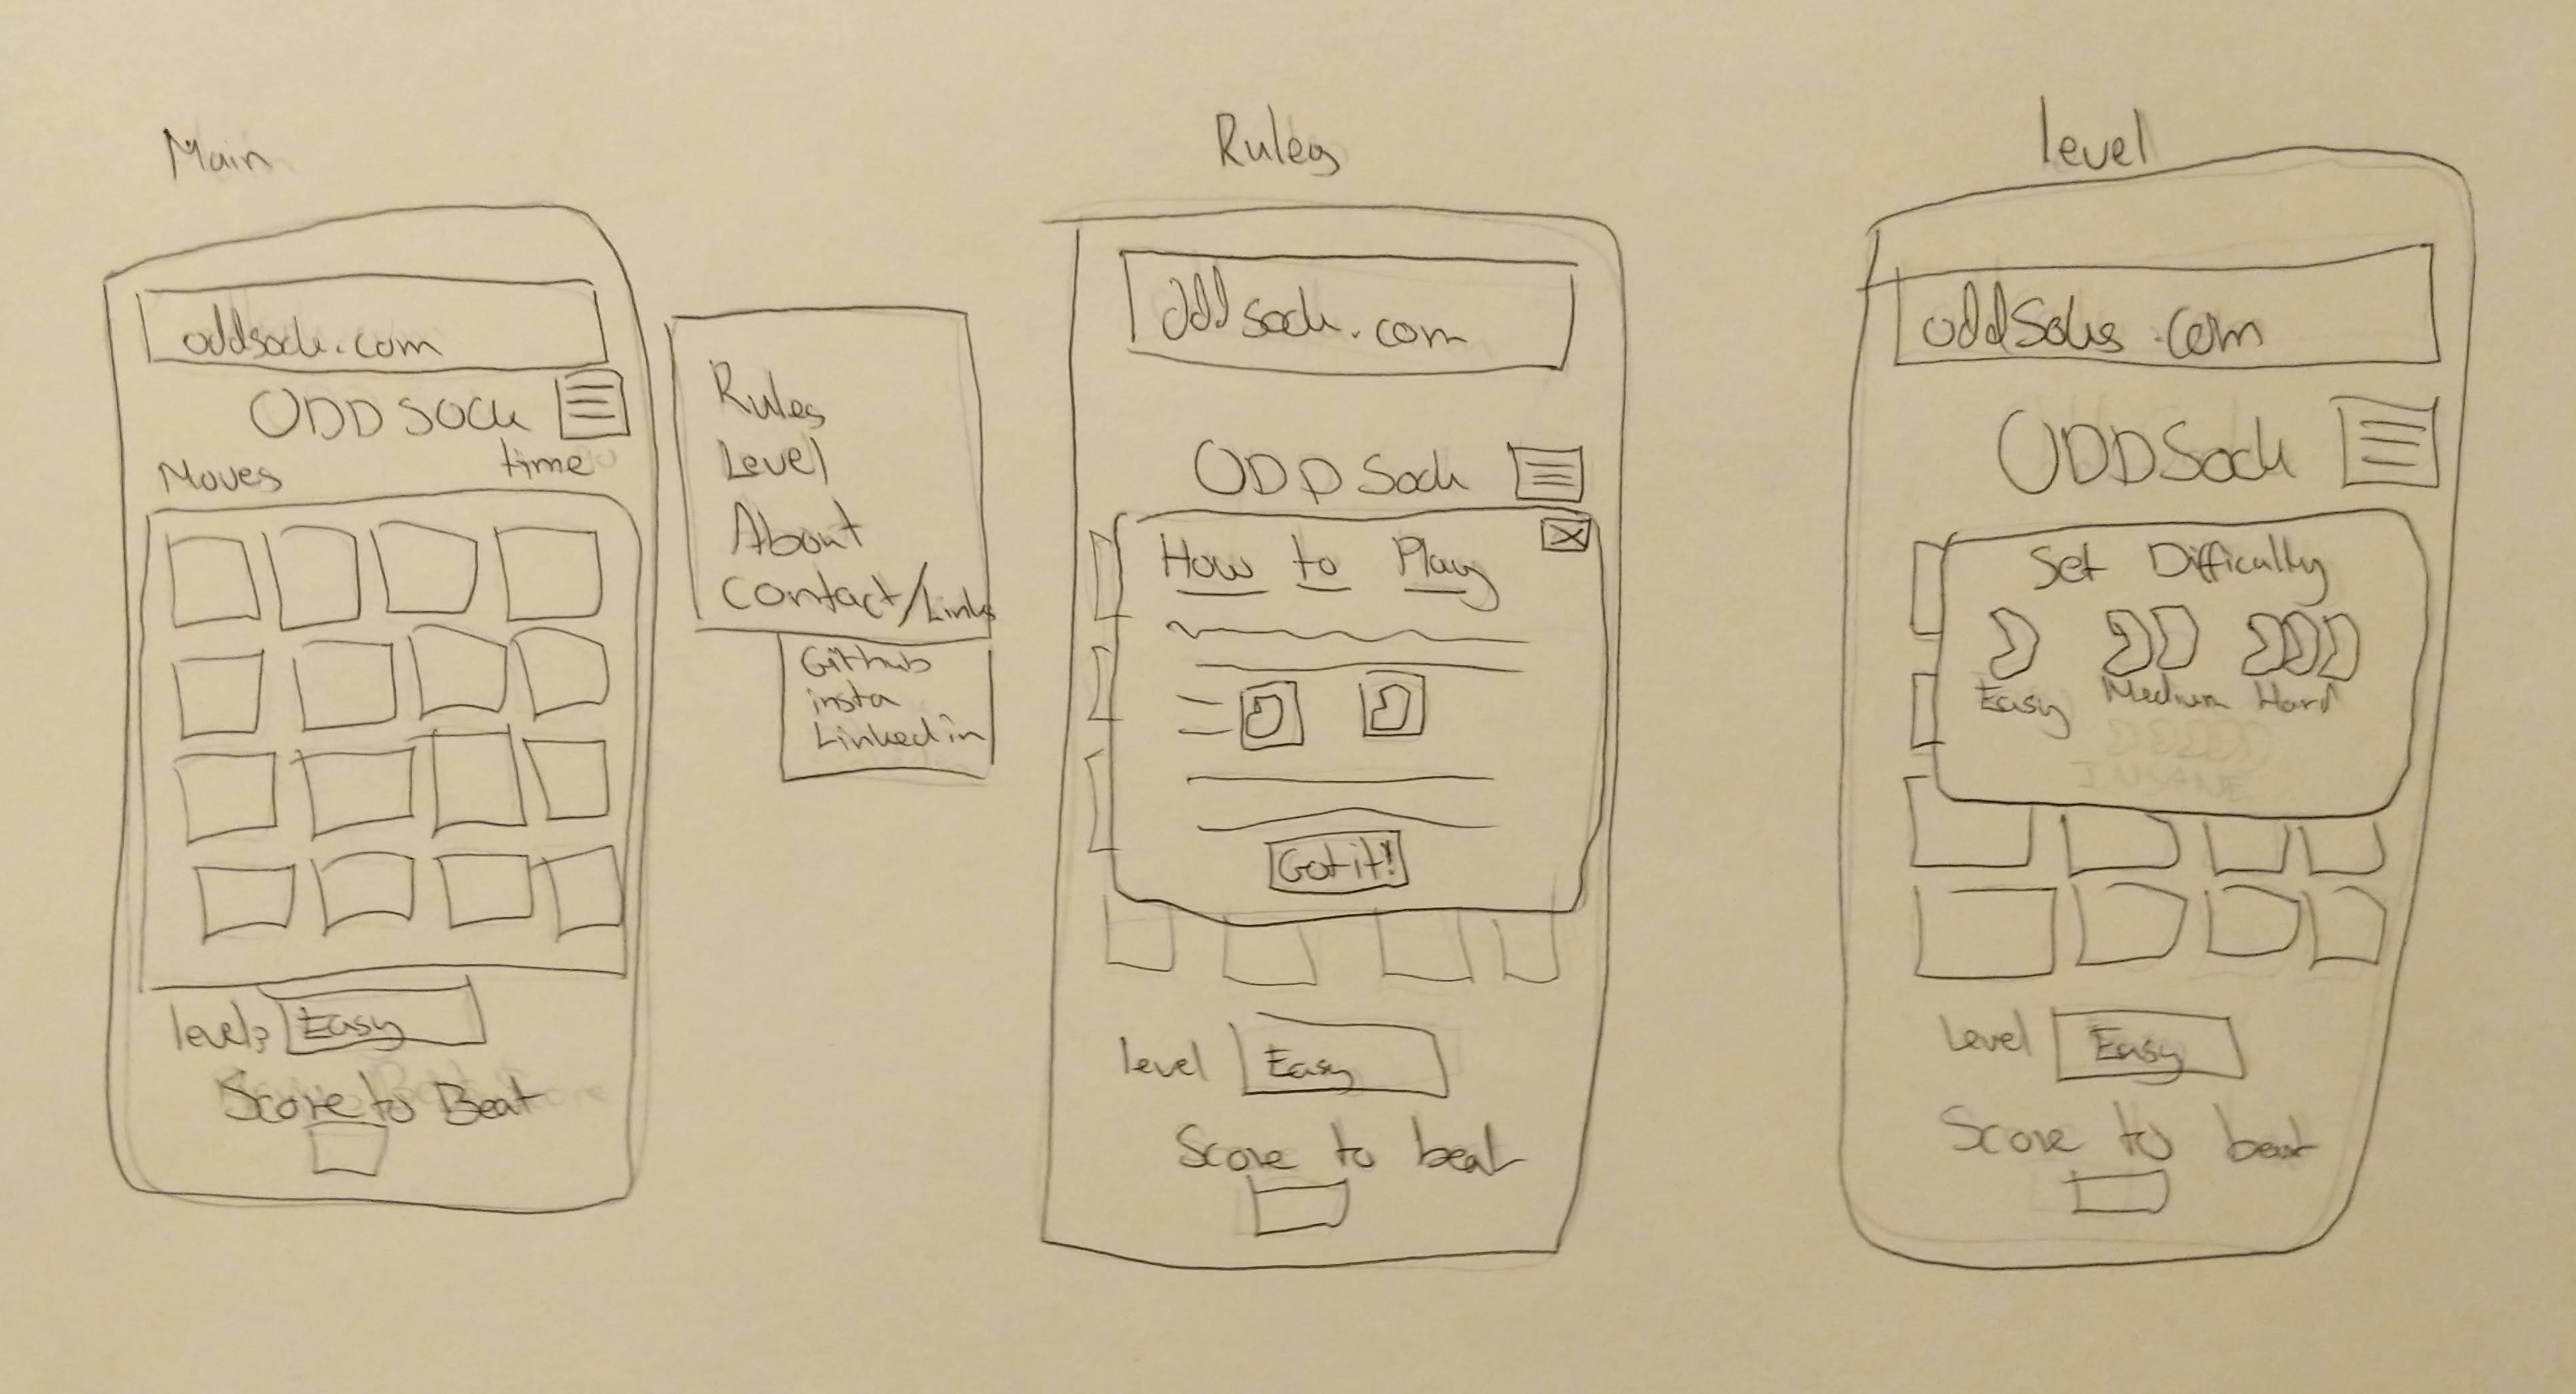 Main
oddsock.com
ODD SOCK
Moves time
level: Easy
Score to Beat
Rules
Level
About
Contact/Links
Github
insta
Linkedin
Rules
Oddsock.com
ODD Sock
How to Play
Got it!
level Easy
Score to beat
level
oddSocks.com
ODDSock
Set Difficulty
Easy Medium Hard
INSANE
Level Easy
Score to beat